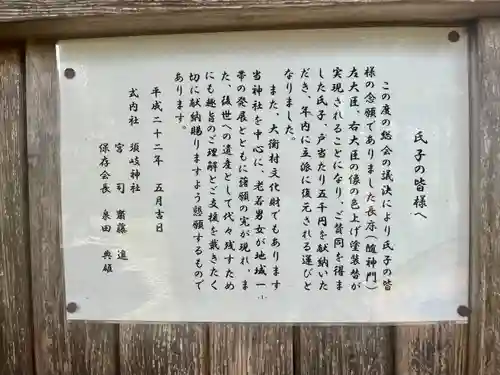 氏子の皆様へ
この度の総会の議決により氏子の皆
様の念願でありました長床(随神門)
左大臣、右大臣の像の色上げ塗装替が
実現されることになり、ご賛同を得ま
した氏子、戸当たり五千円を献納いた
だき、年内に立派に復元される運びと
なりました。
また、大衡村文化財でもあります
当神社を中心に、老若男女が地域一
帯の発展とともに諸願の実が現れ、ま
た、後世への遺産として代々残すため
にも趣旨のご理解とご支援を戴きたく
切に献納賜りますよう懇願するもので
あります。
平成二十二年 五月吉日
式内社 須岐神社
宮司 齋藤 進
保存会長 泉田 典雄
-1-